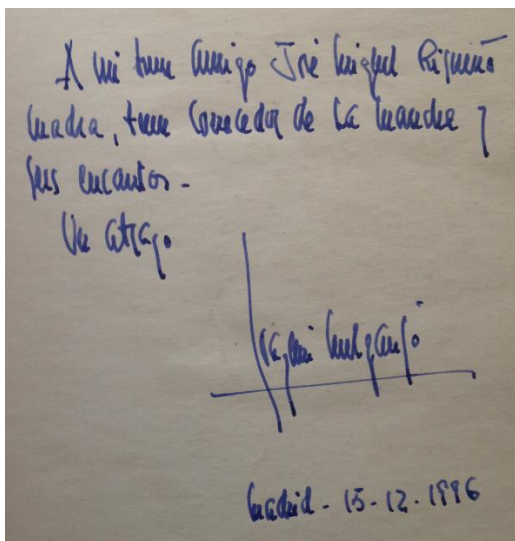 A mi buen amigo José Miguel
, buen conocedor de La Mancha y
sus encantos -
Un abrazo
Madrid - 15-12-1996